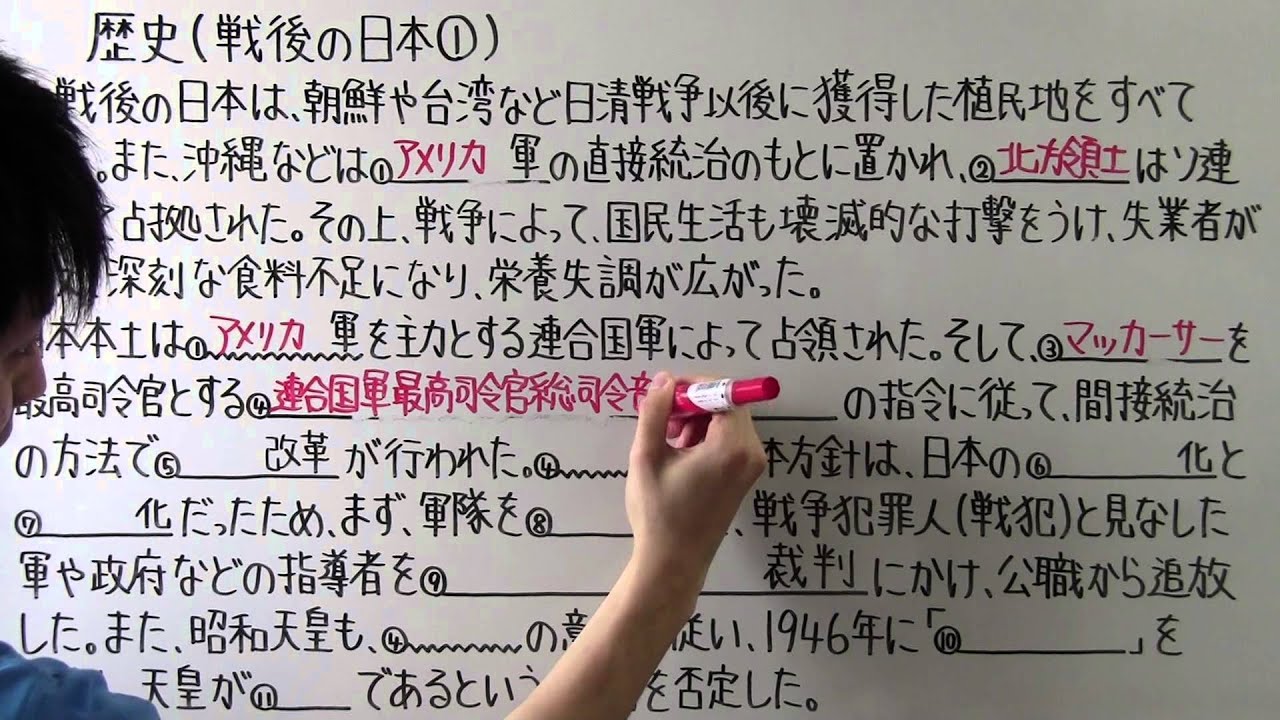 歴史(戦後の日本①)
戦後の日本は、朝鮮や台湾など日清戦争以後に獲得した植民地をすべて
。また、沖縄などは①アメリカ 軍の直接統治のもとに置かれ、②北方領土はソ連
占拠された。その上、戦争によって、国民生活も壊滅的な打撃をうけ、失業者が
深刻な食料不足になり、栄養失調が広がった。
本本土は①アメリカ 軍を主力とする連合国軍によって占領された。そして、③マッカーサーを
最高司令官とする④連合国軍最高司令官総司令 の指令に従って、間接統治
の方法で⑤ 改革が行われた。④ 本方針は、日本の⑥ 化と
⑦ 化だったため、まず、軍隊を⑧ 、戦争犯罪人(戦犯)と見なした
軍や政府などの指導者を⑨ 裁判にかけ、公職から追放
した。また、昭和天皇も、④ の意 従い、1946年に「⑩ 」を
天皇が⑪ であるという を否定した。